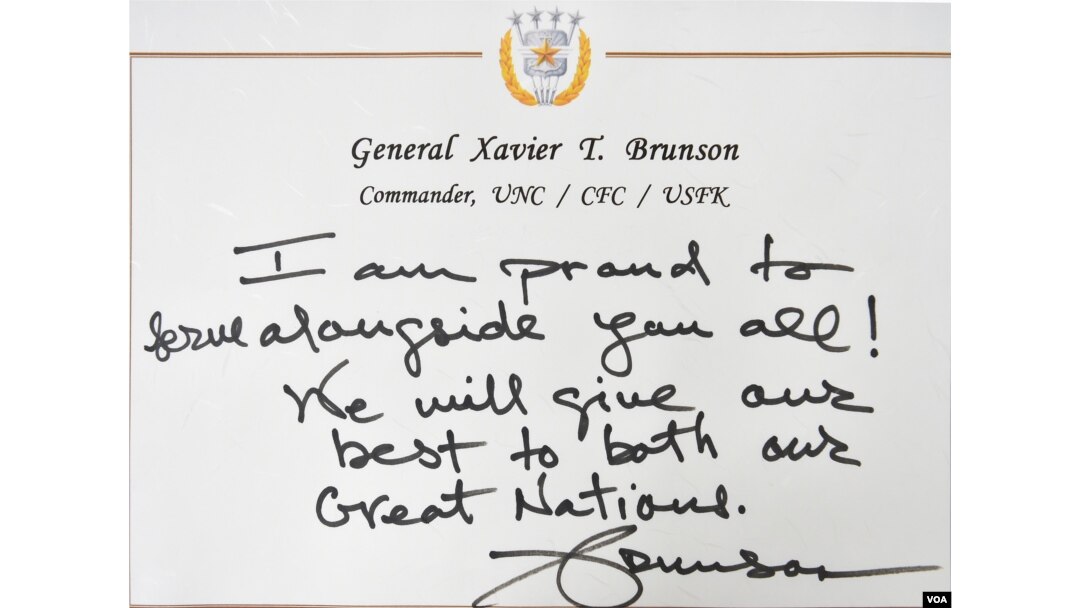 General Xavier T. Brunson
Commander, UNC / CFC / USFK
I am proud to
serve alongside you all!
We will give our
best to both our
Great Nations.
Brunson
VOA